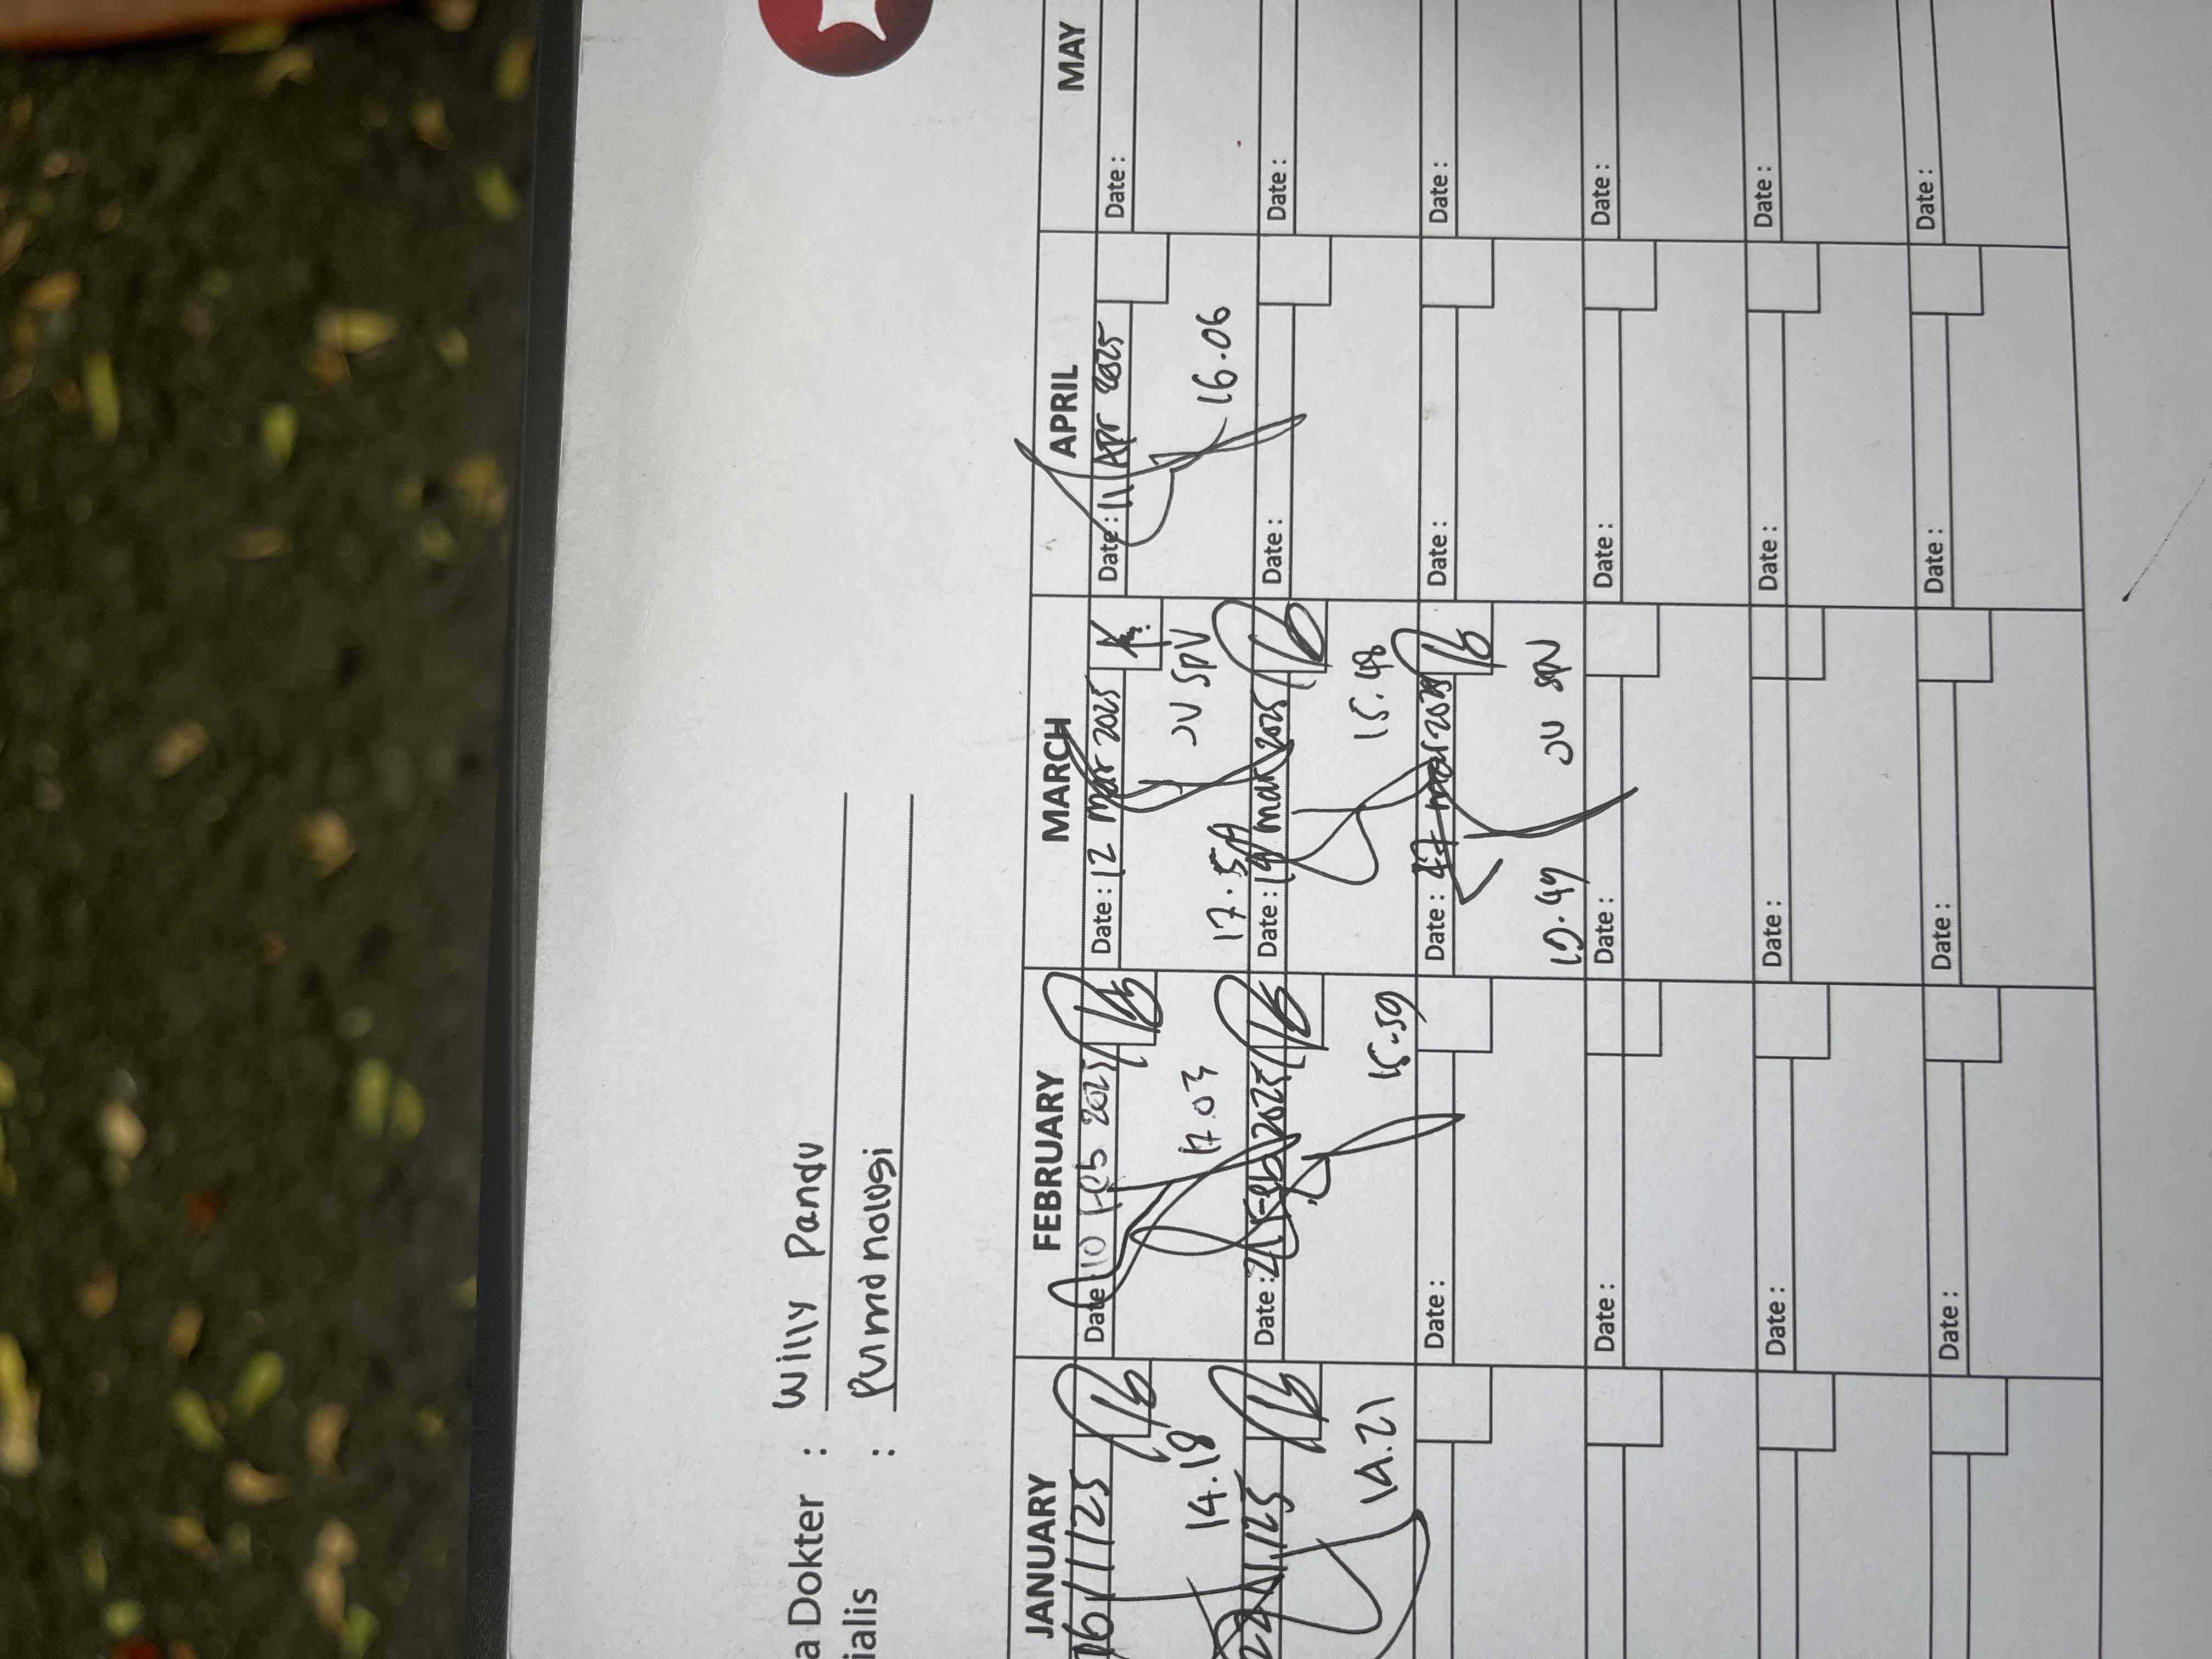 a Dokter : Willy Pandu
ialis : Pulmonologi
JANUARY FEBRUARY MARCH APRIL MAY
16/1/25 Date 10 Feb 2025 Date : 12 Mar 2025 Date : 11 Apr 2025 Date :
14.18 17.03 JV SPV 16.06
17.59
22/1/25 Date : 21 Feb 2025 Date : 19 Mar 2025 Date : Date :
14.21 15.59 15.48
Date : Date : Mar 2025 Date : Date :
JV SPV
19.49
Date : Date : Date : Date :
Date : Date : Date : Date :
Date : Date : Date : Date :